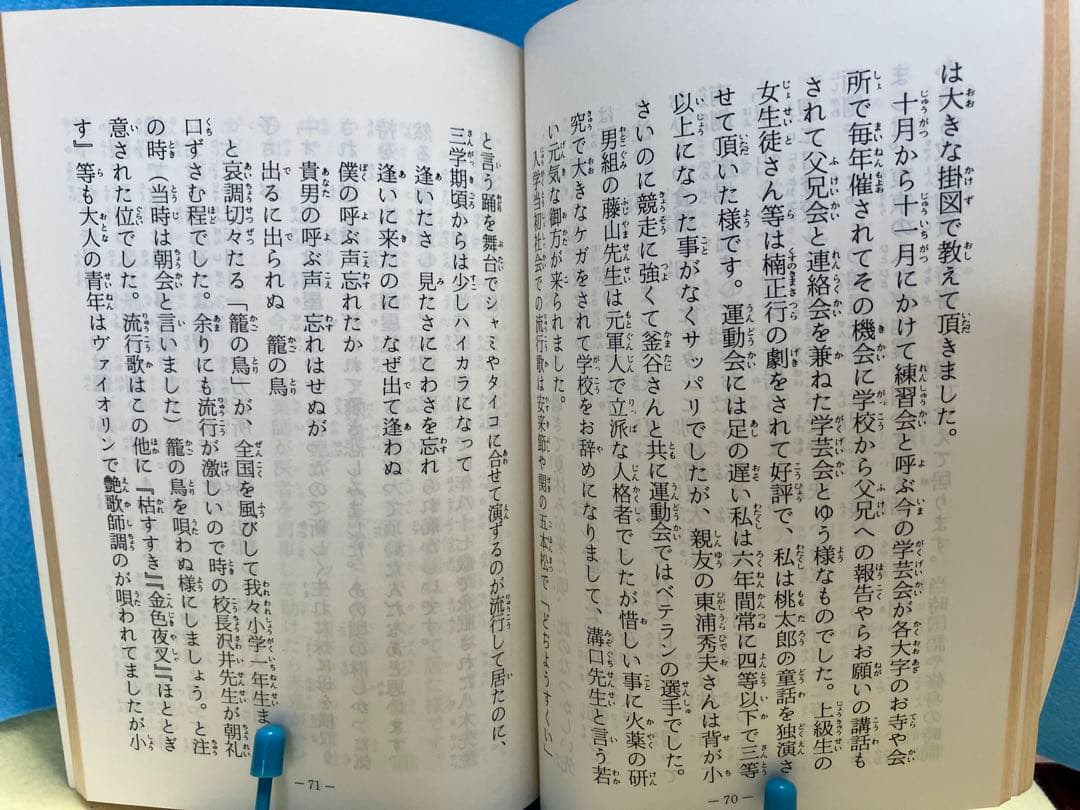 は大きな掛図で教えて頂きました。
十月から十一月にかけて練習会と呼ぶ今の学芸会が各大字のお寺や会
所で毎年催されてその機会に学校から父兄への報告やらお願いの講話も
されて父兄会と連絡会を兼ねた学芸会とゆう様なものでした。上級生の
女生徒さん等は楠正行の劇をされて好評で、私は桃太郎の童話を独演さ
せて頂いた様です。運動会には足の遅い私は六年間常に四等以下で三等
以上になった事がなくサッパリでしたが、親友の東浦秀夫さんは背が小
さいのに競走に強くて釜谷さんと共に運動会ではベテランの選手でした。
男組の藤山先生は元軍人で立派な人格者でしたが惜しい事に火薬の研
究で大きなケガをされて学校をお辞めになりまして、溝口先生と言う若
い元気な御方が来られました。
入学当初社会での流行歌は安来節や関の五本松で「どちようすくい」
－70－
と言う踊を舞台でシャミやタイコに合せて演ずるのが流行して居たのに、
三学期頃からは少しハイカラになって
逢いたさ 見たさにこわさを忘れ
逢いに来たのに なぜ出て逢わぬ
僕の呼ぶ声忘れたか
貴男の呼ぶ声 忘れはせぬが
出るに出られぬ 籠の鳥
と哀調切々たる「籠の鳥」が、全国を風びして我々小学一年生ま
口ずさむ程でした。余りにも流行が激しいので時の校長沢井先生が朝礼
の時（当時は朝会と言いました）籠の鳥を唄わぬ様にしましょう。と注
意された位でした。流行歌はこの他に『枯すすき』『金色夜叉』『ほととぎ
す』等も大人の青年はヴァイオリンで艶歌師調のが唄われてましたが小
－71－